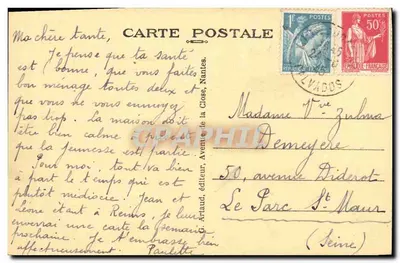 CARTE POSTALE
Ma chère tante,
Je pense que ta santé
est bonne, que vous faites
bon ménage toutes deux et
que vous ne vous ennuyez
pas trop. La maison doit
être bien calme
que la jeunesse est partie.
Pour moi, tout va bien
à part le temps qui est
plutôt médiocre! Jean et
étant à Reims, je leur
enverrai une carte la semaine
prochaine. Je t'embrasse bien
affectueusement. Paulette
Artaud, éditeur, Avenue de la Close, Nantes.
50
CALVADOS
Madame Vve Zulma
Demeyere
50, avenue Diderot
Le Parc St Maur
(Seine)